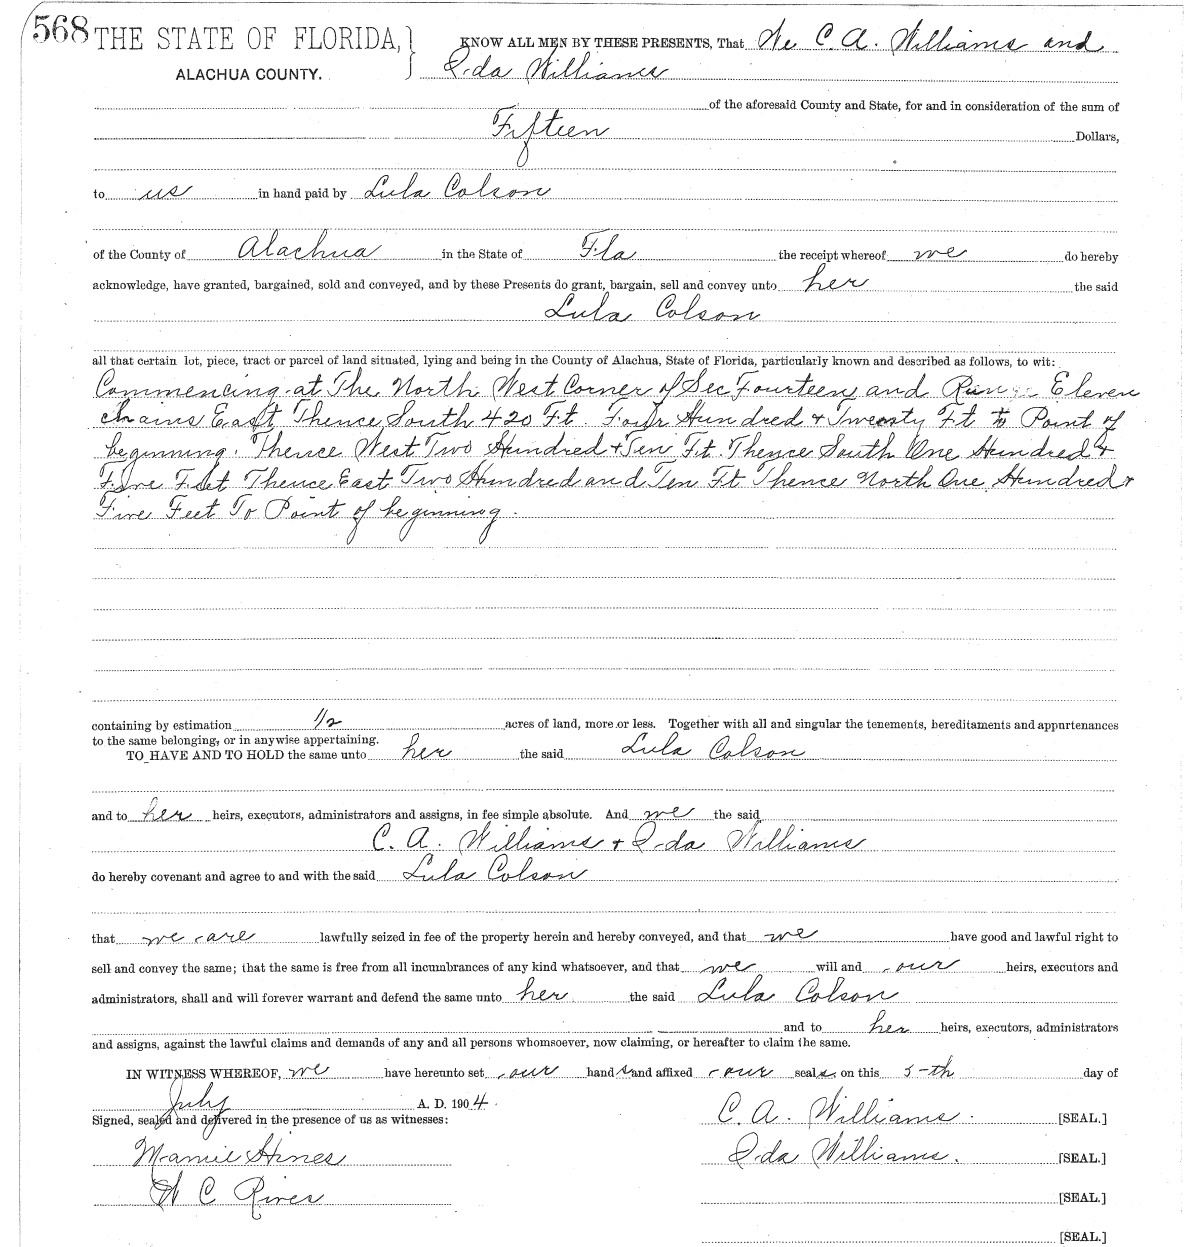 568 THE STATE OF FLORIDA, } KNOW ALL MEN BY THESE PRESENTS, That We C. A. Williams and
ALACHUA COUNTY. Ida Williams
of the aforesaid County and State, for and in consideration of the sum of
Fifteen Dollars,
to us in hand paid by Lula Colson
of the County of Alachua in the State of Fla the receipt whereof we do hereby
acknowledge, have granted, bargained, sold and conveyed, and by these Presents do grant, bargain, sell and convey unto her the said
Lula Colson
all that certain lot, piece, tract or parcel of land situated, lying and being in the County of Alachua, State of Florida, particularly known and described as follows, to wit:
Commencing at The North West Corner of Sec Fourteen and Run Eleven
chains East Thence South 420 Ft. Four Hundred & Twenty Ft to Point of
beginning. Thence West Two Hundred + Ten Ft. Thence South One Hundred +
Five Feet Thence East Two Hundred and Ten Ft Thence North One Hundred &
Five Feet To Point of beginning.
containing by estimation 1/2 acres of land, more or less. Together with all and singular the tenements, hereditaments and appurtenances
to the same belonging, or in anywise appertaining.
TO HAVE AND TO HOLD the same unto her the said Lula Colson
and to her heirs, executors, administrators and assigns, in fee simple absolute. And we the said
C. A. Williams + Ida Williams
do hereby covenant and agree to and with the said Lula Colson
that we are lawfully seized in fee of the property herein and hereby conveyed, and that we have good and lawful right to
sell and convey the same; that the same is free from all incumbrances of any kind whatsoever, and that we will and our heirs, executors and
administrators, shall and will forever warrant and defend the same unto her the said Lula Colson
and to her heirs, executors, administrators
and assigns, against the lawful claims and demands of any and all persons whomsoever, now claiming, or hereafter to claim the same.
IN WITNESS WHEREOF, we have hereunto set our hands and affixed our seals on this 5th day of
July A. D. 1904.
Signed, sealed and delivered in the presence of us as witnesses: C. A. Williams. [SEAL.]
Mamie Hines Ida Williams. [SEAL.]
W C Rives [SEAL.]
[SEAL.]